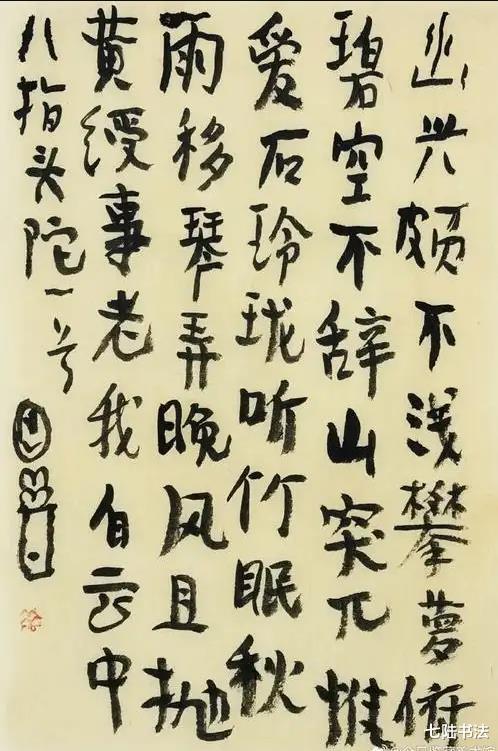 幽兴颇不浅攀萝俯
碧空不辞山突兀惟
爱石玲珑听竹眠秋
雨移琴弄晚风且抛
黄绶事老我白云中
八指头陀一
七陆书法